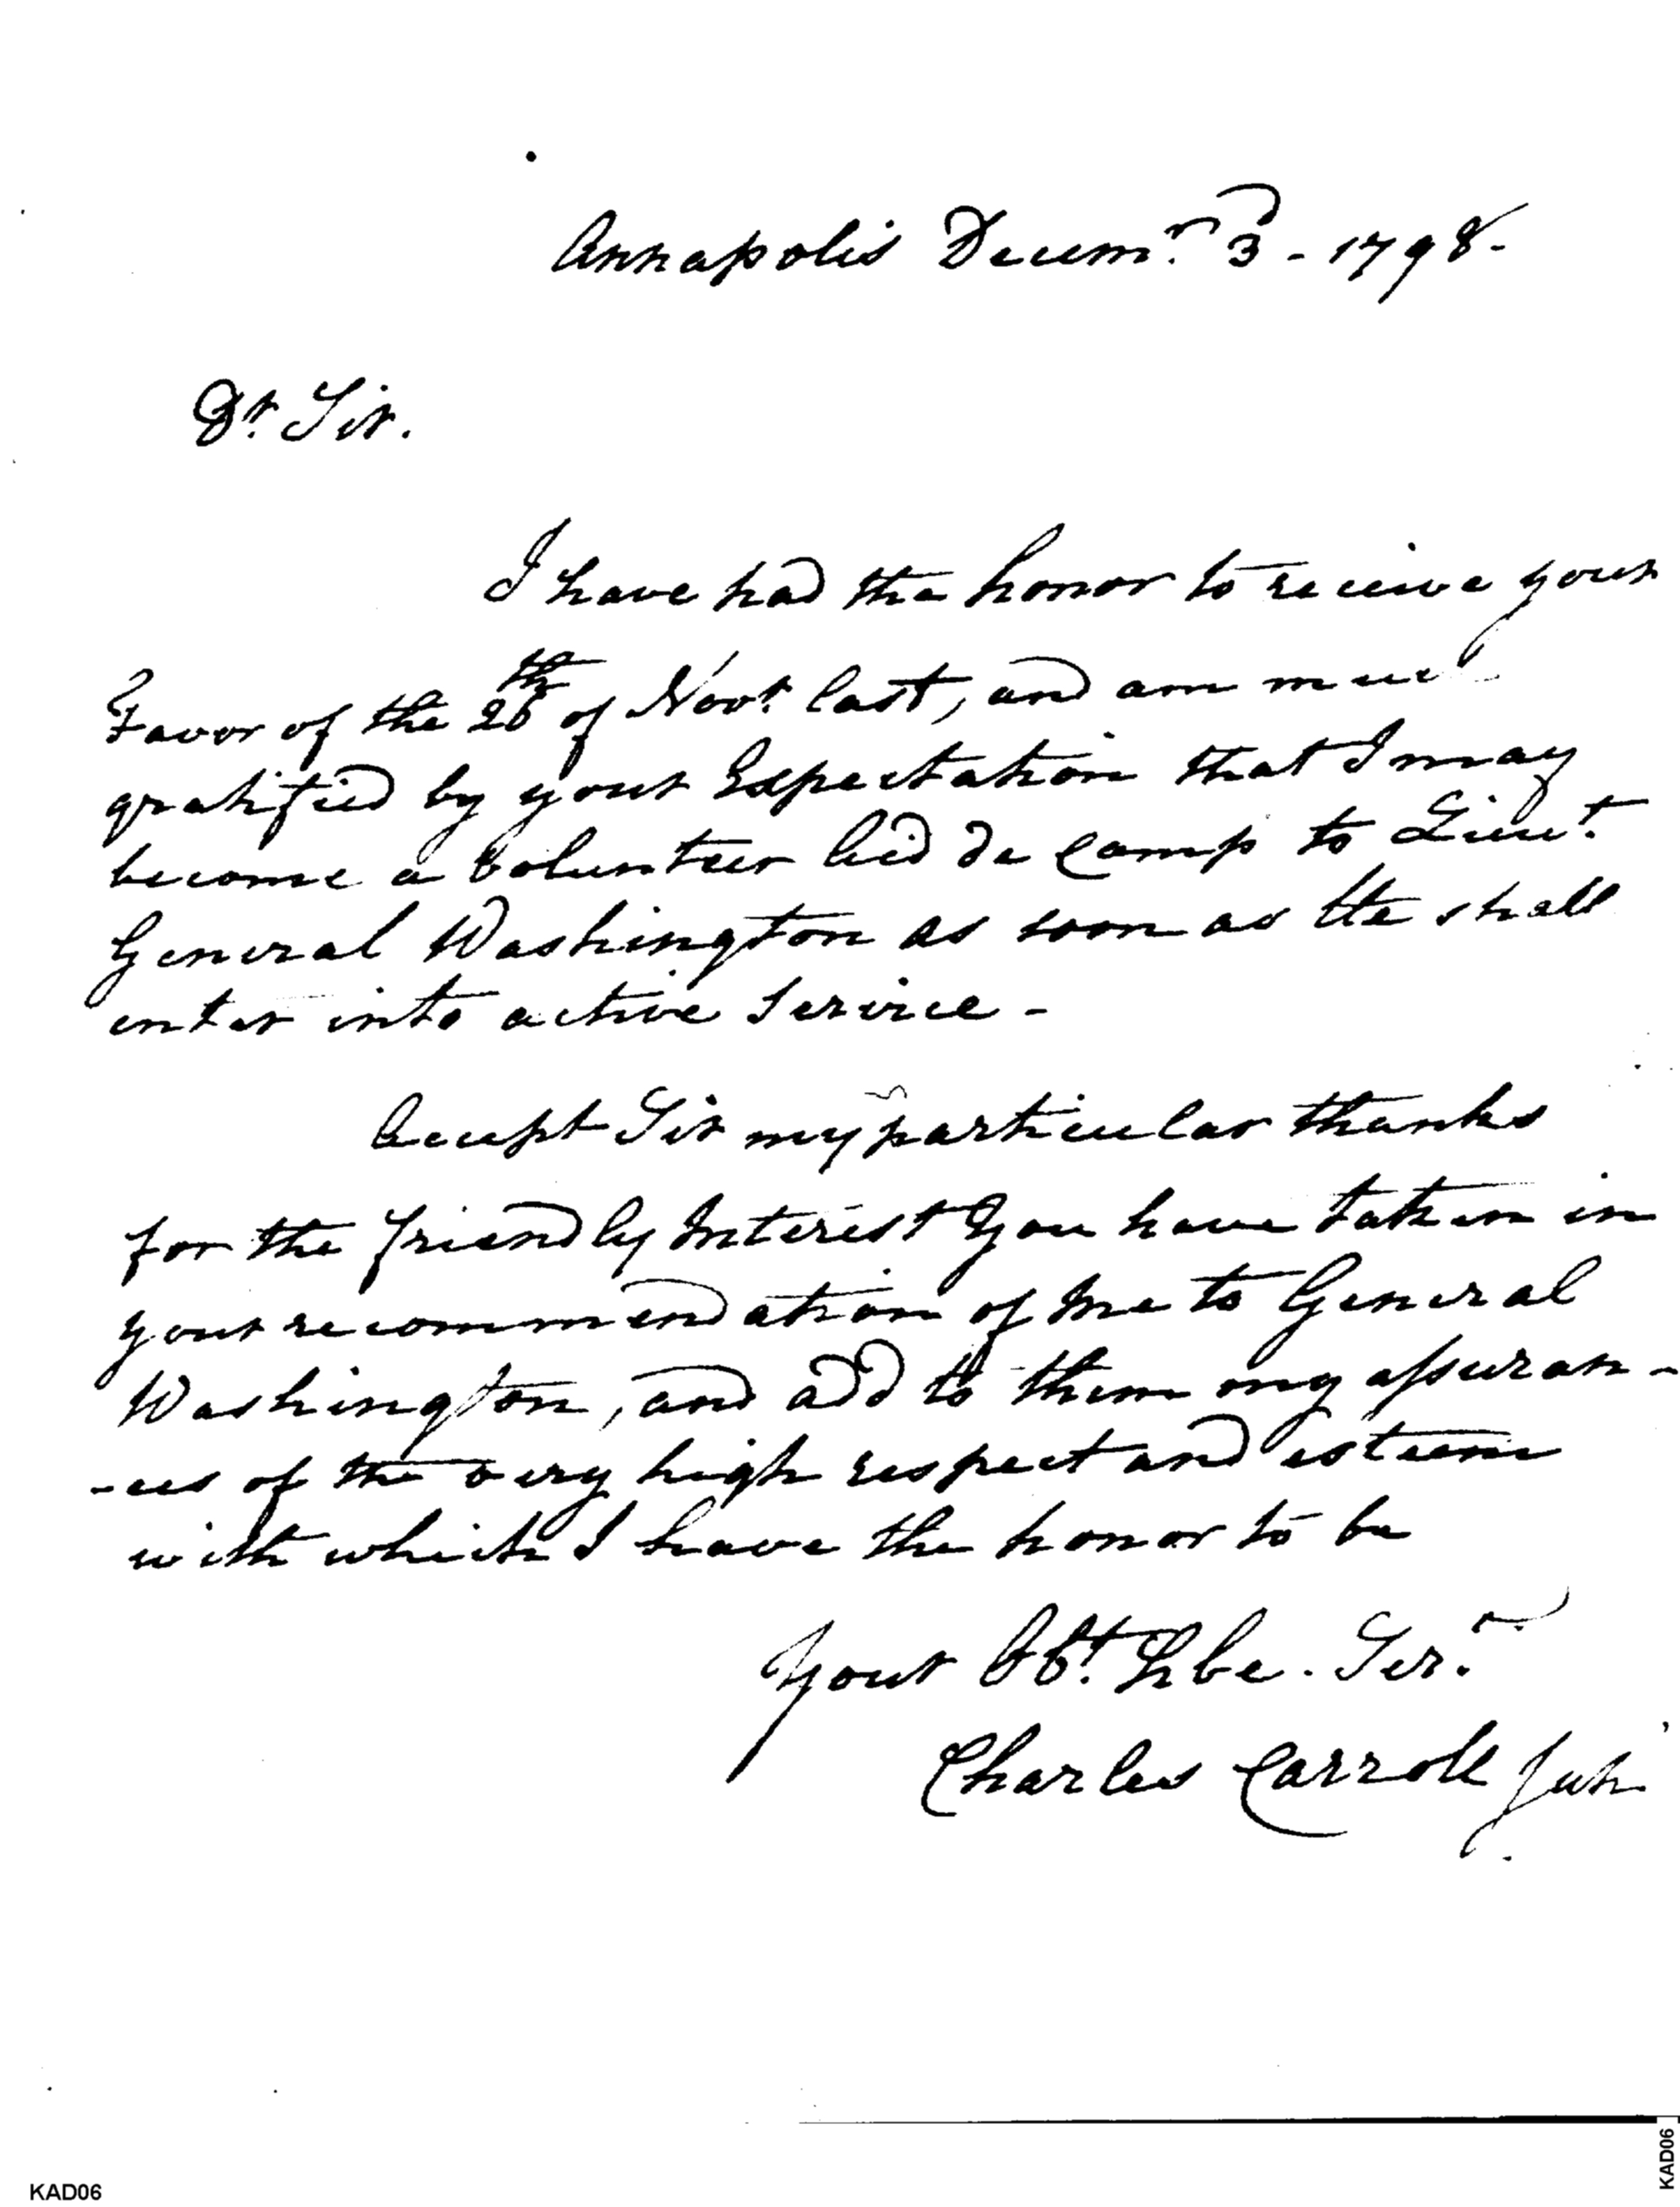 Annapolis Decemr. 3d - 1798-
Dr. Sir.
I have had the honor to receive your
Favor of the 26th of Novr. last, and am much
gratified by your Expectation that I may
become a Volunteer Aid de Camp to Lieut.
General Washington as soon as He shall
enter into active Service -
Accept Sir my particular thanks
for the friendly Interest You have taken in
your recommendation of Me to General
Washington, and add to them my assuran-
-ces of the very high respect and esteem
with which I have the honor to be
Your Obt. Hbe. Serv.
Charles Carroll Jun
KAD06
KAD06